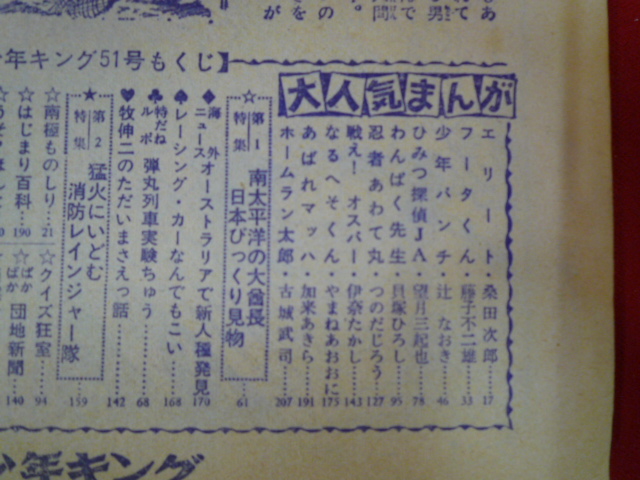 少年キング51号もくじ】
大人気まんが
エリート・桑田次郎 17
フータくん・藤子不二雄 33
少年パンチ・辻なおき 46
ひみつ探偵JA・望月三起也 78
わんぱく先生・貝塚ひろし 95
忍者あわて丸・つのだじろう 127
戦え!オスパー・伊奈たかし 143
なるへそくん・やまねあおおに 175
あばれマッハ・加来あきら 191
ホームラン太郎・古城武司 207
☆第1特集 南太平洋の大酋長日本びっくり見物 61
◆海外ニュース オーストラリアで新人種発見 170
♠レーシング・カーなんでもこい 168
♣特だねルポ 弾丸列車実験ちゅう 68
♥牧伸二のただいまさえっ話 142
★第2特集 猛火にいどむ消防レインジャー隊 159
☆南極ものしり 21
☆はじまり百科 190
☆クイズ狂室 94
☆ばかばか団地新聞 140
少年キング